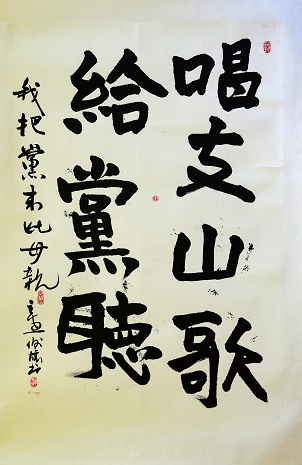 唱支山歌
給黨聽
我把黨來比母親